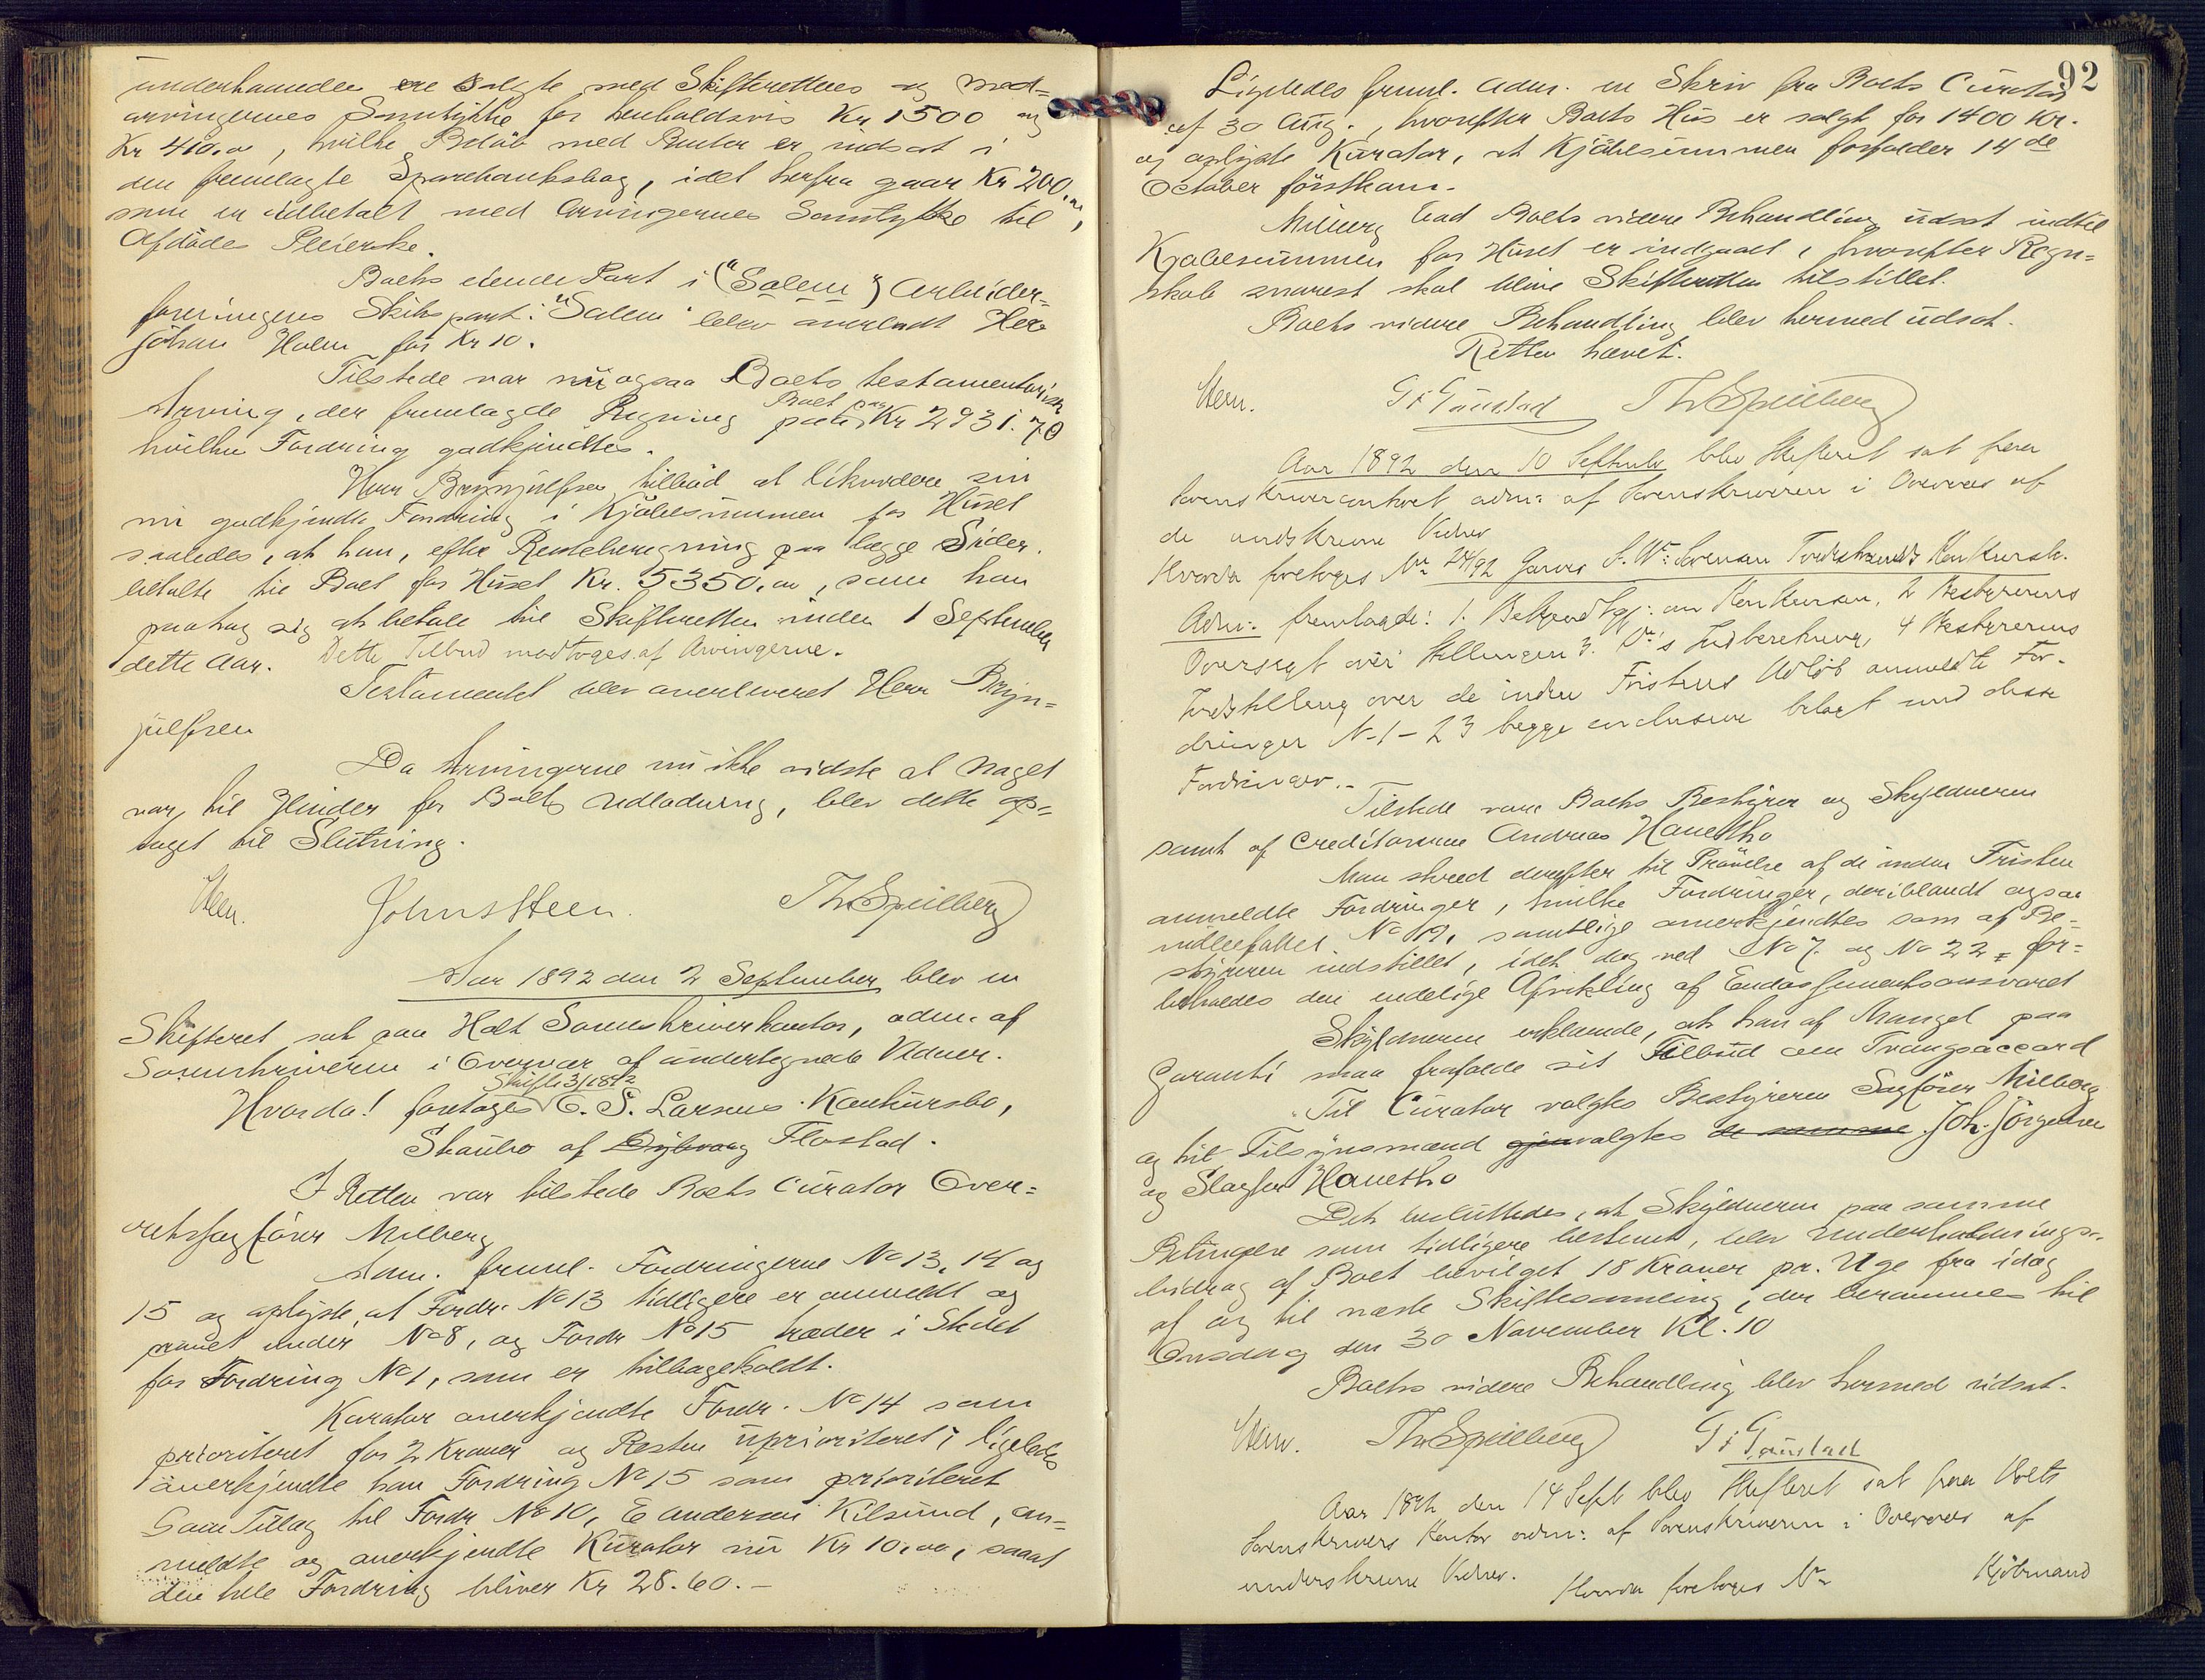 underhaanden ere solgte med Skifterettens og med-
arvingernes Samtykke for henholdsvis Kr 1500 og
Kr 410.00, hvilke Beløb med Renter er indsat i
den fremlagte Sparebanksbog, idet herfra gaar Kr 200.00,
som er udbetalt med Arvingernes Samtykke til
Afdødes Pleierske.
Boets eiende Part i ("Salem") Arbeider-
foreningens Skibspart i "Salem" blev overladt Herr
Johan Holm for Kr 10.
Tilstede var nu ogsaa Boets testamentariske
Arving, der fremlagde Regning paa Boet paa Kr 2931.70
hvilken Fordring godkjendtes.
Herr Brynjulfsen tilbød at likvidere sin
nu godkjendte Fordring i Kjøbesummen for Huset
saaledes, at han, efter Renteberegning paa begge Sider,
betalte til Boet for Huset Kr. 5350.00, som han
paatog sig at betale til Skifteretten inden 1 September
dette Aar. Dette Tilbud modtoges af Arvingerne.
Testamentet blev overleveret Herr Bryn-
julfsen
Da Arvingerne nu ikke vidste at noget
var til Hinder for Boets Udlodning, blev dette op-
taget til Slutning.
Steen. Johns Steen. Th. Spilberg
Aar 1892 den 2 September blev en
Skifteret sat paa Holt Sorenskriverkontor, adm. af
Sorenskriveren i Overvær af undertegnede Vidner.
Hvorda! foretoges Skifte 3/1892 C. S. Larsens Konkursbo,
Staubo af Dybvaag Flostad.
I Retten var tilstede Boets Curator Over-
retssagfører Milberg
Adm. freml. Fordringerne No 13, 14 og
15 og oplyste, at Fordr. No 13 tidligere er anmeldt og
prøvet under No 8, og Fordr No 15 træder i Stedet
for Fordring No 1, som er tilbagekaldt.
Kurator anerkjendte Fordr. No 14 som
prioriteret for 2 Kroner og Resten uprioriteret; ligeledes
anerkjendte han Fordring No 15 som prioriteret
Som Tillæg til Fordr No 10, E Andersen Kilsund, an-
meldte og anerkjendte Kurator nu Kr 10.00, saaat
den hele Fordring bliver Kr 28.60.-
92
Ligeledes freml. Adm. en Skriv fra Boets Curator
af 30 Aug., hvorefter Boets Hus er solgt for 1400 Kr.
og oplyste Kurator, at Kjøbesummen forfalder 14de
October førstkom.
Milberg bad Boets videre Behandling udsat indtil
Kjøbesummen for Huset er indgaaet, hvorefter Regn-
skab snarest skal blive Skifteretten tilstillet.
Boets videre Behandling blev hermed udsat.
Retten hævet.
Steen. G. Gaustad Th. Spilberg
Aar 1892 den 10 Septembr blev Skifteret sat paa
Sorenskriverkontoret adm: af Sorenskriveren i Overvær af
de underskrevne Vidner
Hvorda foretoges No 24/92 Garver S. W. Sørensen Tvedestrands Konkursbo.
Adm: fremlagde: 1. Bekjendtgj: om Konkursen, 2 Bestyrerens
Oversigt over Stillingen 3. Do's Indberetning, 4 Bestyrerens
Indstilling over de inden Fristens Udløb anmeldte For-
dringer N. 1 - 23 begge inclusive belagt med disse
Fordringer.-
Tilstede vare Boets Bestyrer og Skyldneren
samt af Creditorerne Andreas Hanetho
Man skred derefter til Prøvelse af de inden Fristen
anmeldte Fordringer, hvilke Fordringer, deriblandt ogsaa
No 19, samtlige anerkjendtes som af Be-
styreren indstillet, idet dog ved No 7. og No 22 for-
beholdes den endelige Afvikling af Endossementsansvaret
Skyldneren erklærede, at han af Mangel paa
Garanti maa frafalde sit Tilbud om Tvangsaccord
Til Curator valgtes Bestyreren Sagfører Milberg
og til Tilsynsmænd gjenvalgtes de samme Joh. Jørgensen
og Slagter Hanetho
Det besluttedes, at Skyldneren paa samme
Betingelse som tidligere bestemt, blev Underholdnings-
bidrag af Boet bevilget 18 Kroner pr. Uge fra idag
af og til næste Skiftesamling, der berammes til
Onsdag den 30 November Kl. 10
Boets videre Behandling blev hermed udsat.
Steen. Th. Spilberg G. Gaustad
Aar 1892 den 14 Sept blev Skifteret sat paa Holts
Sorenskrivers Kontor adm: af Sorenskriveren i Overvær af
underskrevne Vidner. Hvorda foretoges No Kjøbmand